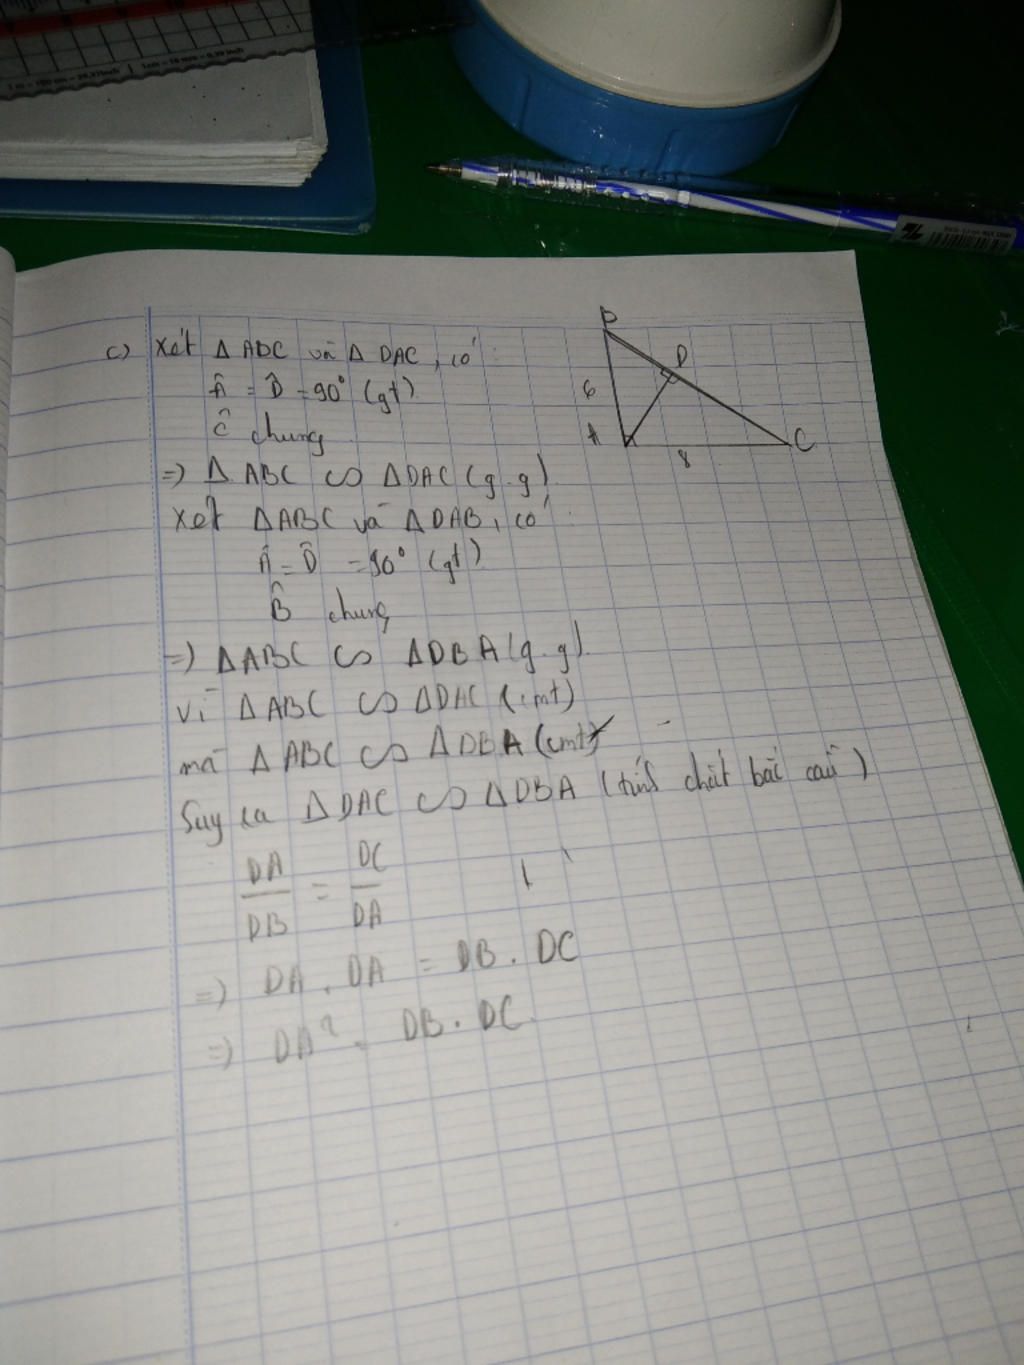 c) Xét Δ ABC và Δ DAC, có:
Â = D̂ = 90° (gt)
Ĉ chung
=> Δ ABC ∽ Δ DAC (g.g)
Xét Δ ABC và Δ DAB, có:
Â = D̂ = 90° (gt)
B̂ chung
=> Δ ABC ∽ Δ DBA (g.g).
vì Δ ABC ∽ Δ DAC (cmt)
mà Δ ABC ∽ Δ DBA (cmt)
Suy ra Δ DAC ∽ Δ DBA (tính chất bắc cầu)
DA/DB = DC/DA
=> DA . DA = DB . DC
=> DA² = DB . DC
B
D
6
A
8
C